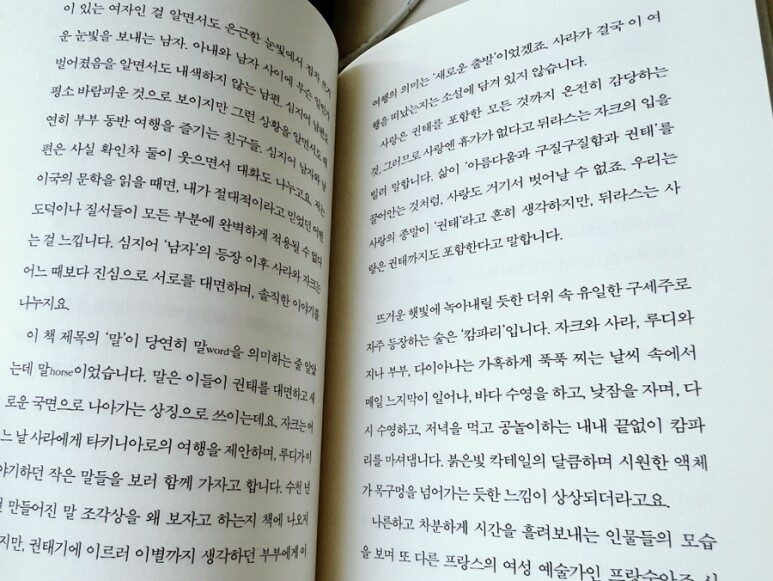 이 있는 여자인 걸 알면서도 은근한 눈빛에서 점차
운 눈빛을 보내는 남자. 아내와 남자 사이에 무슨 일인가
벌어졌음을 알면서도 내색하지 않는 남편, 심지어 남편도
평소 바람피운 것으로 보이지만 그런 상황을 알면서도 태
연히 부부 동반 여행을 즐기는 친구들. 심지어 남자와 남
편은 사실 확인차 둘이 웃으면서 대화도 나누고요. 저는
이국의 문학을 읽을 때면, 내가 절대적이라고 믿었던 어떤
도덕이나 질서들이 모든 부분에 완벽하게 적용될 수 없다
는 걸 느낍니다. 심지어 ‘남자’의 등장 이후 사라와 자크는
어느 때보다 진심으로 서로를 대면하며, 솔직한 이야기를
나누지요.
이 책 제목의 ‘말’이 당연히 말word을 의미하는 줄 알았
는데 말horse이었습니다. 말은 이들이 권태를 대면하고 새
로운 국면으로 나아가는 상징으로 쓰이는데요. 자크는 어
느 날 사라에게 타키니아로의 여행을 제안하며, 루디가 이
야기하던 작은 말들을 보러 함께 가자고 합니다. 수천 년
만들어진 말 조각상을 왜 보자고 하는지 책에 나오지
지만, 권태기에 이르러 이별까지 생각하던 부부에게 이
여행의 의미는 ‘새로운 출발’이었겠죠. 사라가 결국 이 여
행을 떠났는지는 소설에 담겨 있지 않습니다.
사랑은 권태를 포함한 모든 것까지 온전히 감당하는
것, 그러므로 사랑엔 휴가가 없다고 뒤라스는 자크의 입을
빌려 말합니다. 삶이 ‘아름다움과 구질구질함과 권태’를
끌어안는 것처럼, 사랑도 거기서 벗어날 수 없죠. 우리는
사랑의 종말이 ‘권태’라고 흔히 생각하지만, 뒤라스는 사
랑은 권태까지도 포함한다고 말합니다.
뜨거운 햇빛에 녹아내릴 듯한 더위 속 유일한 구세주로
자주 등장하는 술은 ‘캄파리’입니다. 자크와 사라, 루디와
지나 부부, 다이아나는 가혹하게 푹푹 찌는 날씨 속에서
매일 느지막이 일어나, 바다 수영을 하고, 낮잠을 자며, 다
시 수영하고, 저녁을 먹고 공놀이하는 내내 끝없이 캄파
리를 마셔댑니다. 붉은빛 칵테일의 달큼하며 시원한 액체
가 목구멍을 넘어가는 듯한 느낌이 상상되더라고요.
나른하고 차분하게 시간을 흘려보내는 인물들의 모습
을 보며 또 다른 프랑스의 여성 예술가인